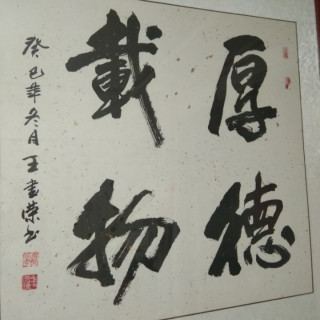 厚德
載物
癸巳年冬月王書荣书